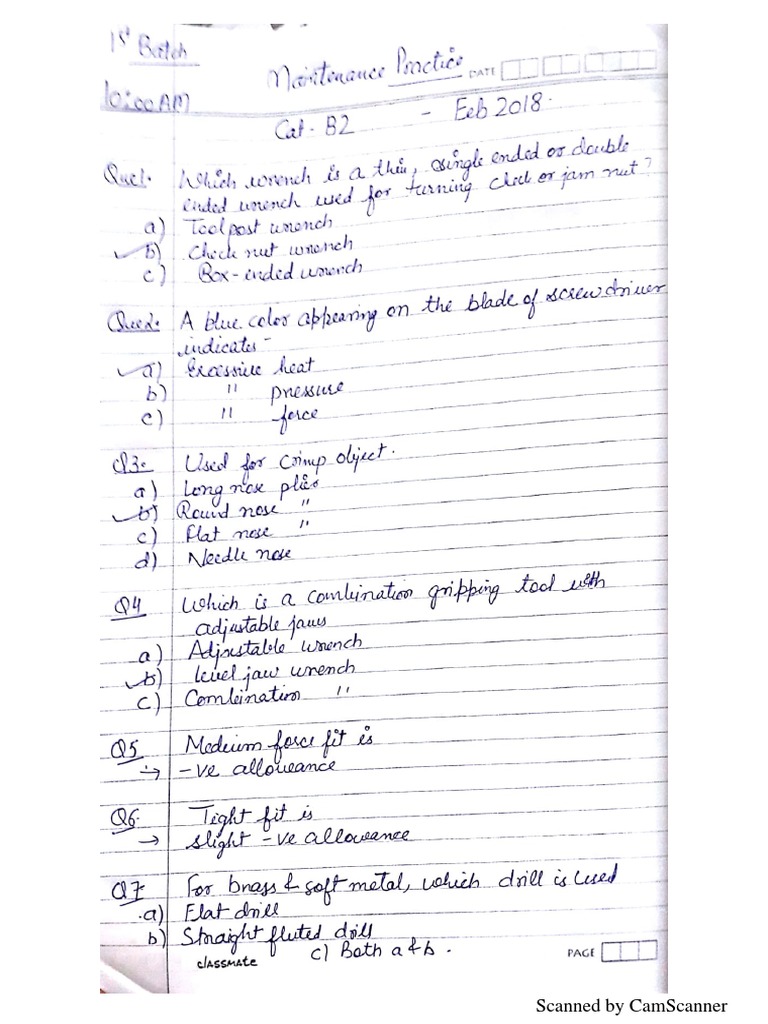 1st Batch
Maintenance Practice DATE
10:00 AM
Cat- B2 - Feb 2018.
Que1. Which wrench is a thin, single ended or double
ended wrench used for turning check or jam nut?
a) Toolpost wrench
b) Check nut wrench
c) Box-ended wrench
Que2. A blue color appearing on the blade of screwdriver
indicates-
a) Excessive heat
b) " pressure
c) " force
Q3. Used for crimp object.
a) Long nose plier
b) Round nose "
c) Flat nose "
d) Needle nose
Q4 Which is a combination gripping tool with
adjustable jaws
a) Adjustable wrench
b) level jaw wrench
c) Combination "
Q5 Medium force fit is
→ -ve allowance
Q6. Tight fit is
→ slight -ve allowance
Q7 For brass & soft metal, which drill is used
a) Flat drill
b) Straight fluted drill
c) Both a & b.
classmate PAGE
Scanned by CamScanner